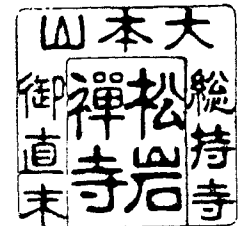 大本山
総持寺
御直末
松岩
禅寺